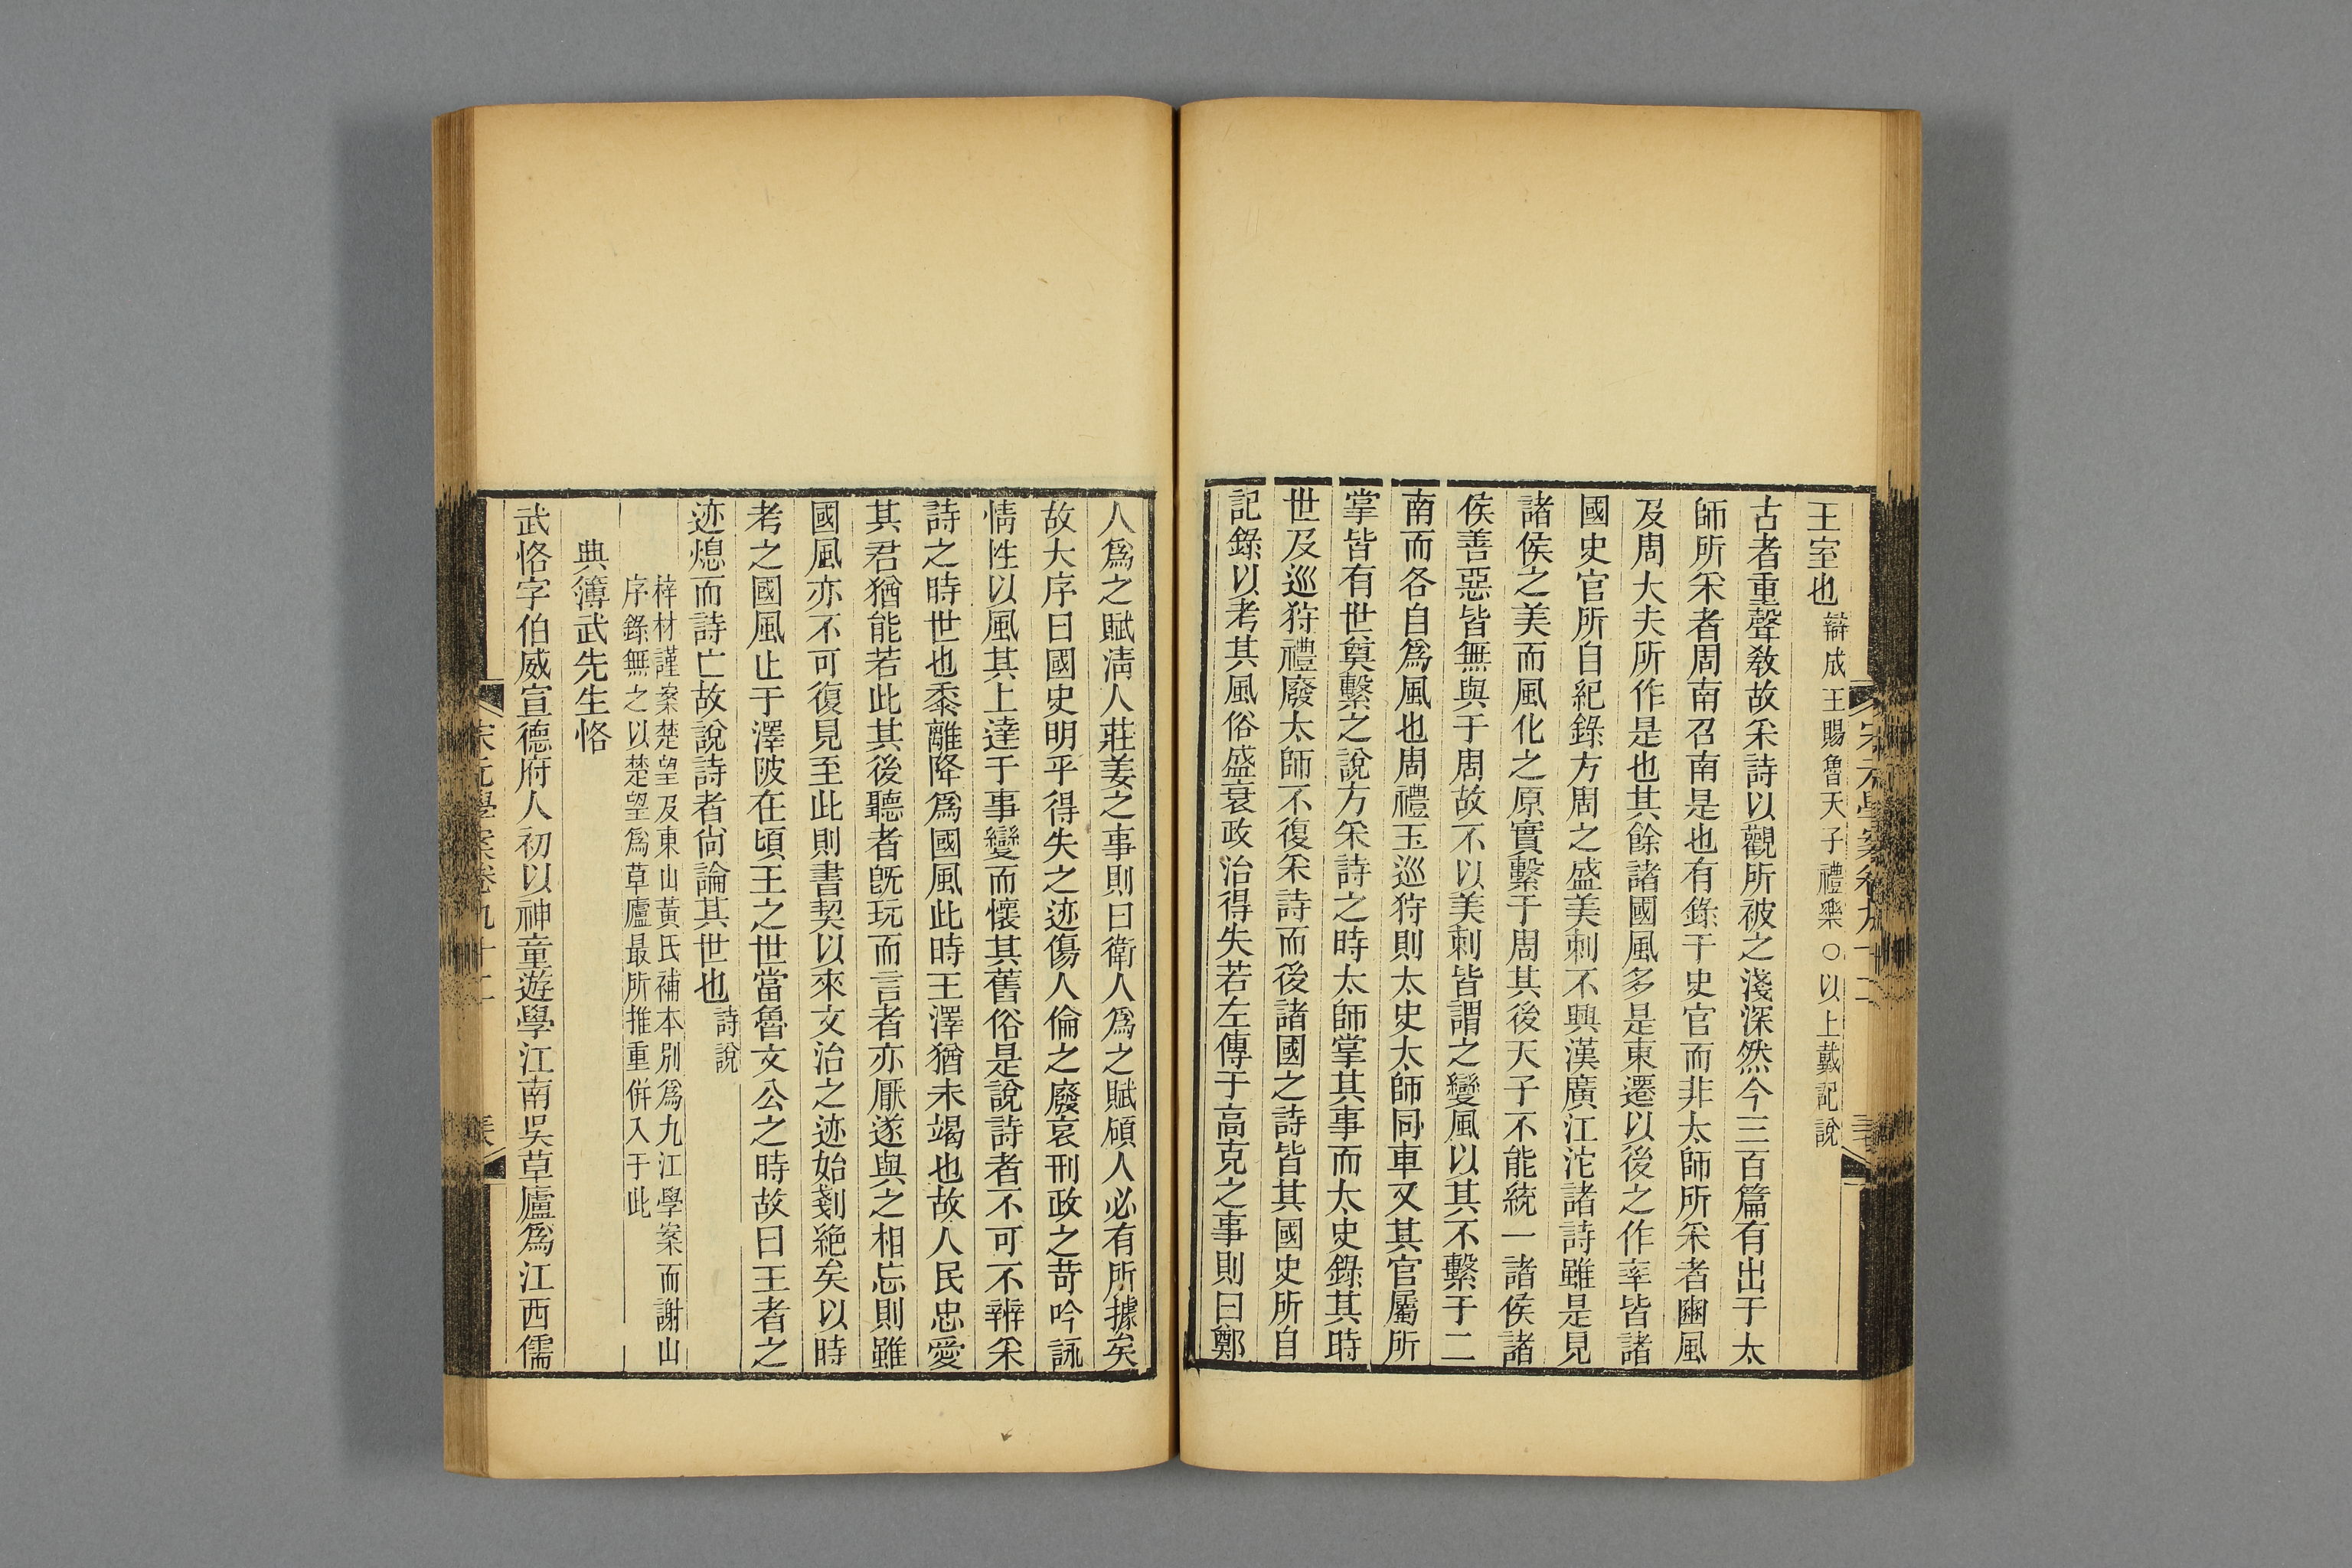 王室也辯成王賜魯天子禮樂○以上戴記說
古者重聲敎故采詩以觀所被之淺深然今三百篇有出于太
師所采者周南召南是也有錄于史官而非太師所采者豳風
及周大夫所作是也其餘諸國風多是東遷以後之作率皆諸
國史官所自紀錄方周之盛美刺不興漢廣江沱諸詩雖是見
諸侯之美而風化之原實繫于周其後天子不能統一諸侯諸
侯善惡皆無與于周故不以美刺皆謂之變風以其不繫于二
南而各自爲風也周禮王巡狩則太史太師同車又其官屬所
掌皆有世奠繫之說方采詩之時太師掌其事而太史錄其時
世及巡狩禮廢太師不復采詩而後諸國之詩皆其國史所自
記錄以考其風俗盛衰政治得失若左傳于高克之事則曰鄭
宋元學案卷九十二
人爲之賦淸人莊姜之事則曰衛人爲之賦碩人必有所據矣
故大序曰國史明乎得失之迹傷人倫之廢哀刑政之苛吟詠
情性以風其上達于事變而懷其舊俗是說詩者不可不辨采
詩之時世也黍離降爲國風此時王澤猶未竭也故人民忠愛
其君猶能若此其後聽者旣玩而言者亦厭遂與之相忘則雖
國風亦不可復見至此則書契以來文治之迹始剗絕矣以時
考之國風止于澤陂在頃王之世當魯文公之時故曰王者之
迹熄而詩亡故說詩者尙論其世也詩說
梓材謹案楚望及東山黃氏補本別爲九江學案而謝山
序錄無之以楚望爲草廬最所推重併入于此
典簿武先生恪
武恪字伯威宣德府人初以神童遊學江南吳草廬爲江西儒
宋元學案卷九十二